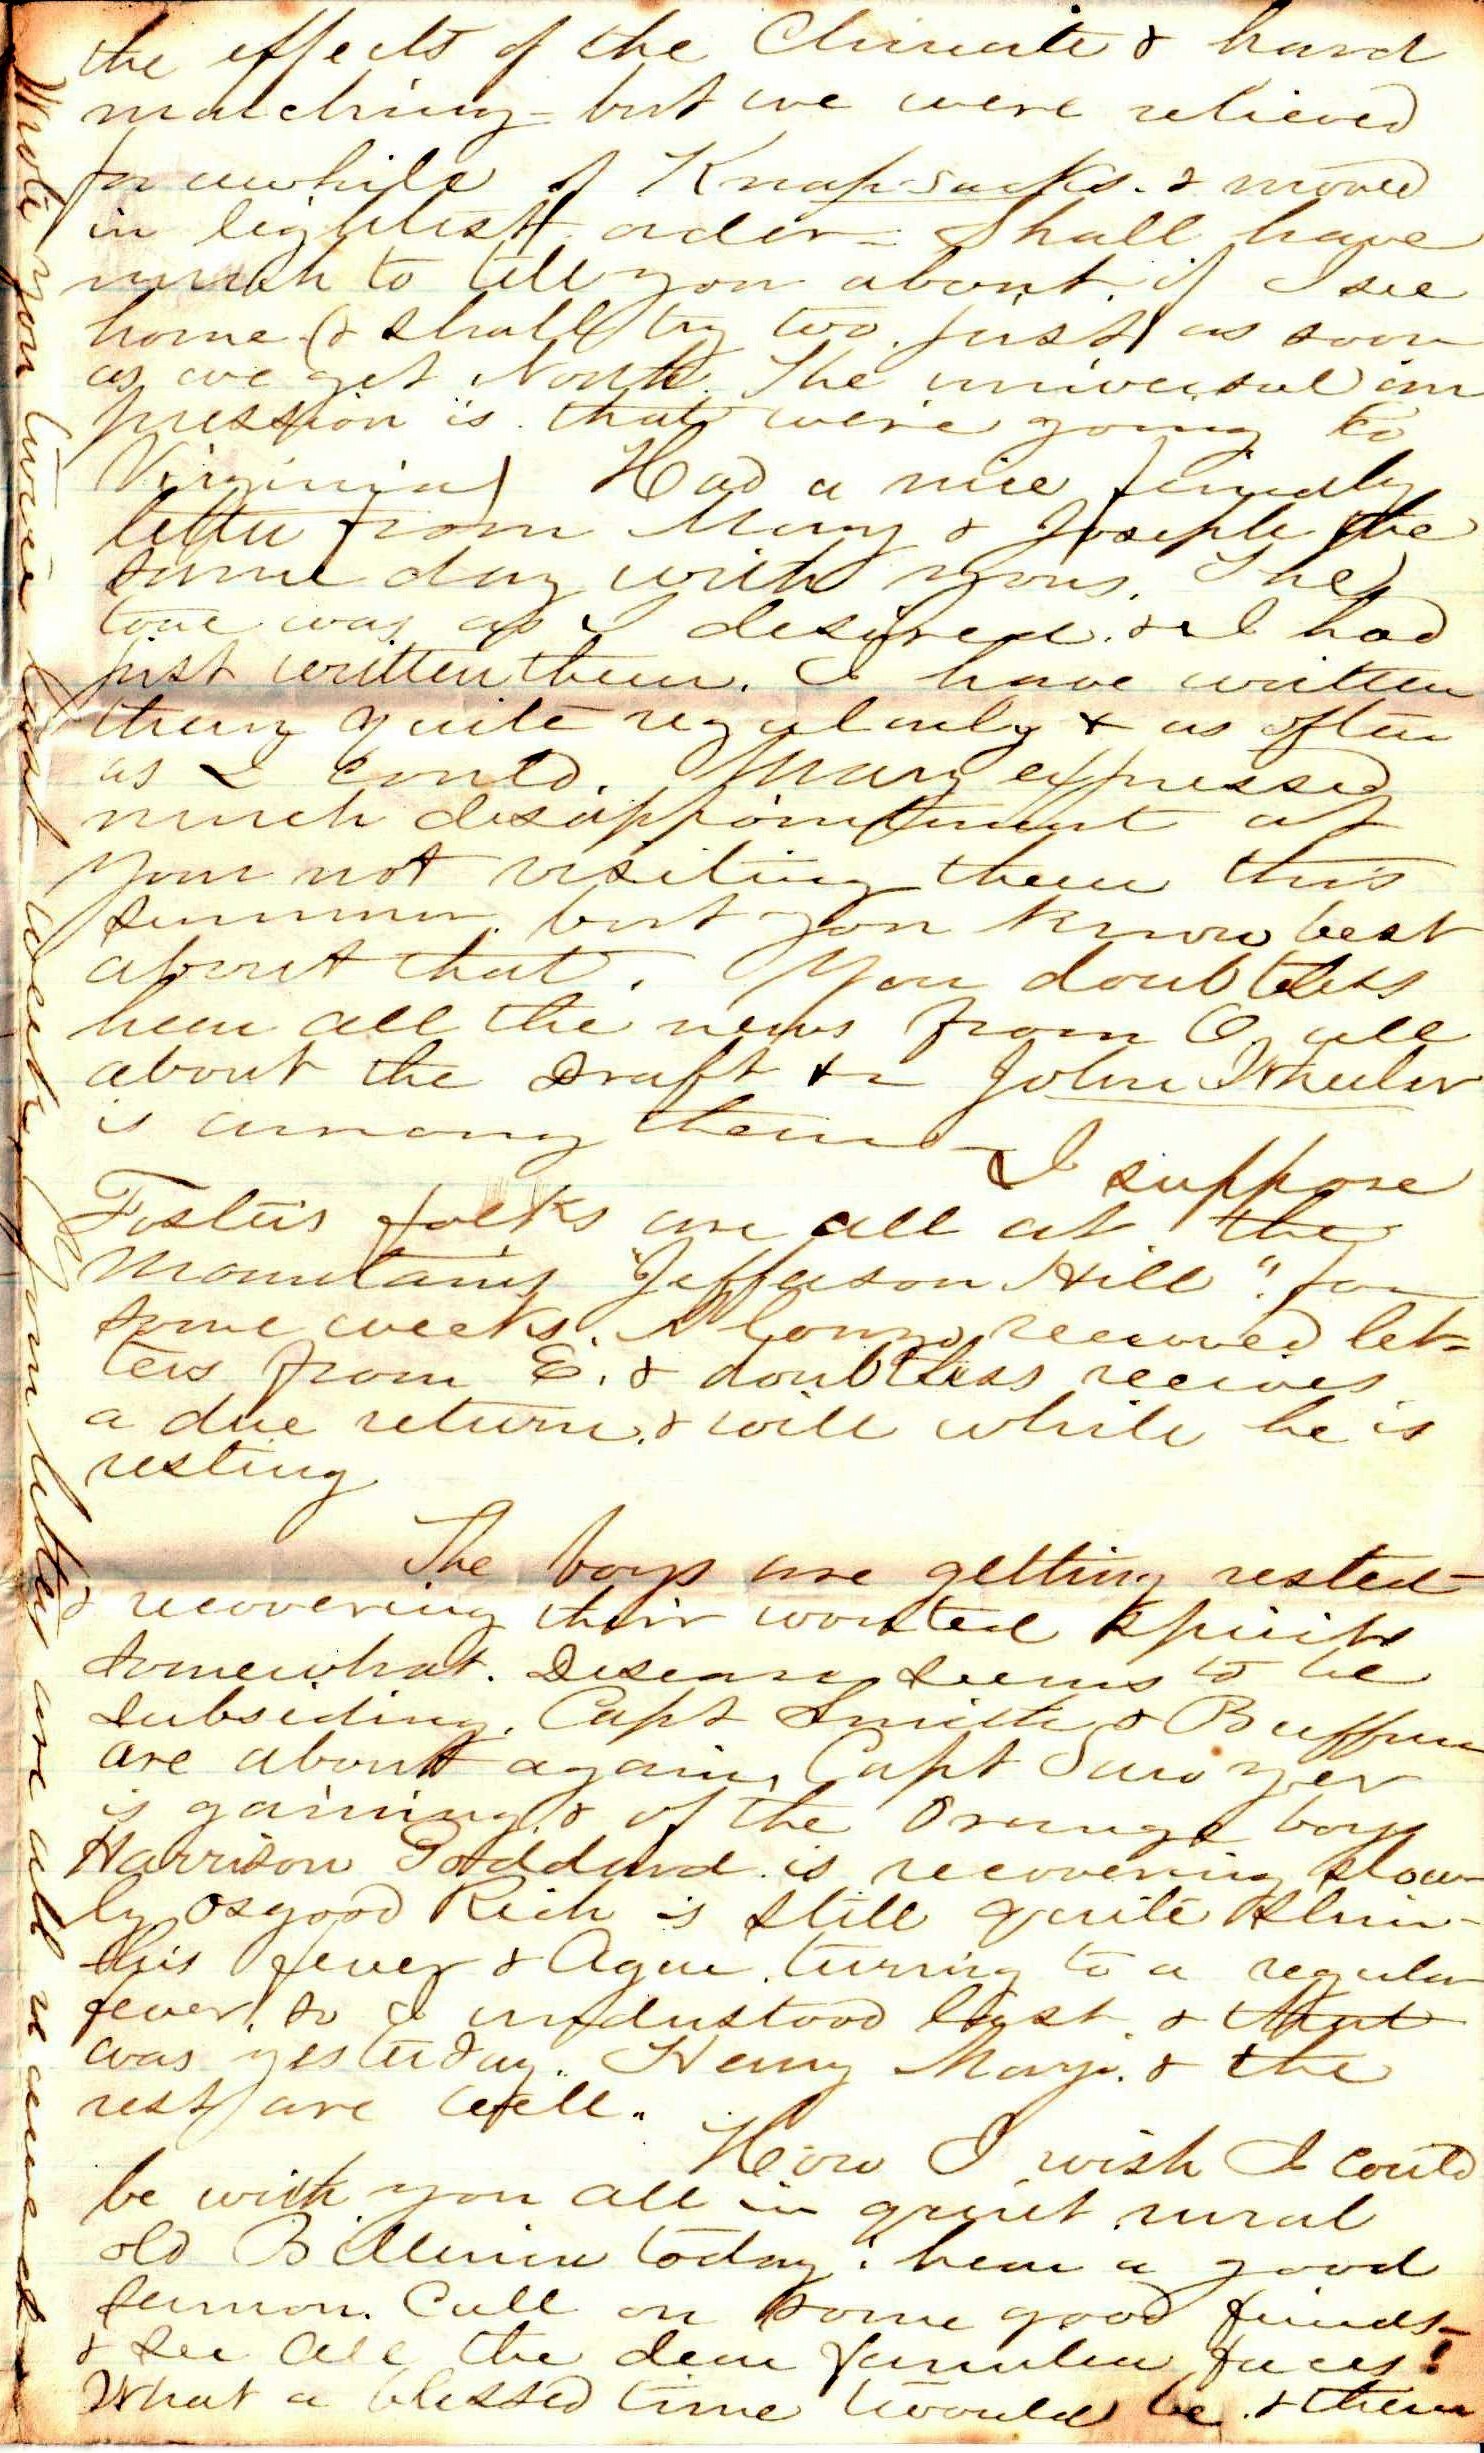 the effects of the Climate & hard
marching - but we were relieved
for awhile of Knap-sacks. & moved
in lightest order - Shall have
much to tell you about. if I see
home (& shall try too. just as soon
as we get North. The universal im
pression is. that we're going to
Virginia) Had a nice friendly
letter from Mary & Joseph the
same day with yours. The
tone was as I desired. & I had
just written them. I have written
them quite regularly & as often
as I could. Mary expressed
much disappointment at
your not visiting them this
summer. but you know best
about that. You doubtless
hear all the news from O. all
about the Draft &c John Wheeler
is among them - I suppose
Foster's folks are all at the
Mountains "Jefferson Hill". for
some weeks. Alonzo received let-
ters from E. & doubtless receives
a due return. & will while he is
resting
The boys are getting rested -
& recovering their wonted spirits
somewhat. Disease seems to be
subsiding. Capt Smith & Buffum
are about again, Capt Sawyer
is gaining. & of the Orange boys
Harrison Goddard is recovering slow-
ly Osgood Rich is still quite slim -
his fever & Ague turning to a regular
fever. so I understood last. & that
was yesterday. Henry Mayo. & the
rest are well.
How I wish I could
be with you all in quiet rural
old Billerica today. hear a good
sermon. Call on some good friends -
& see all the dear familiar faces!
What a blessed time twould be. & then
Wrote you twice last week. Your letters are all received